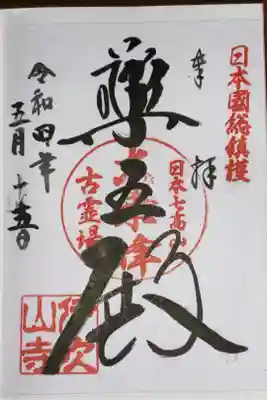 日本國総鎮護
奉拝
日本七高山
薬王殿
古霊場
令和四年
五月十五日
伊吹
山寺